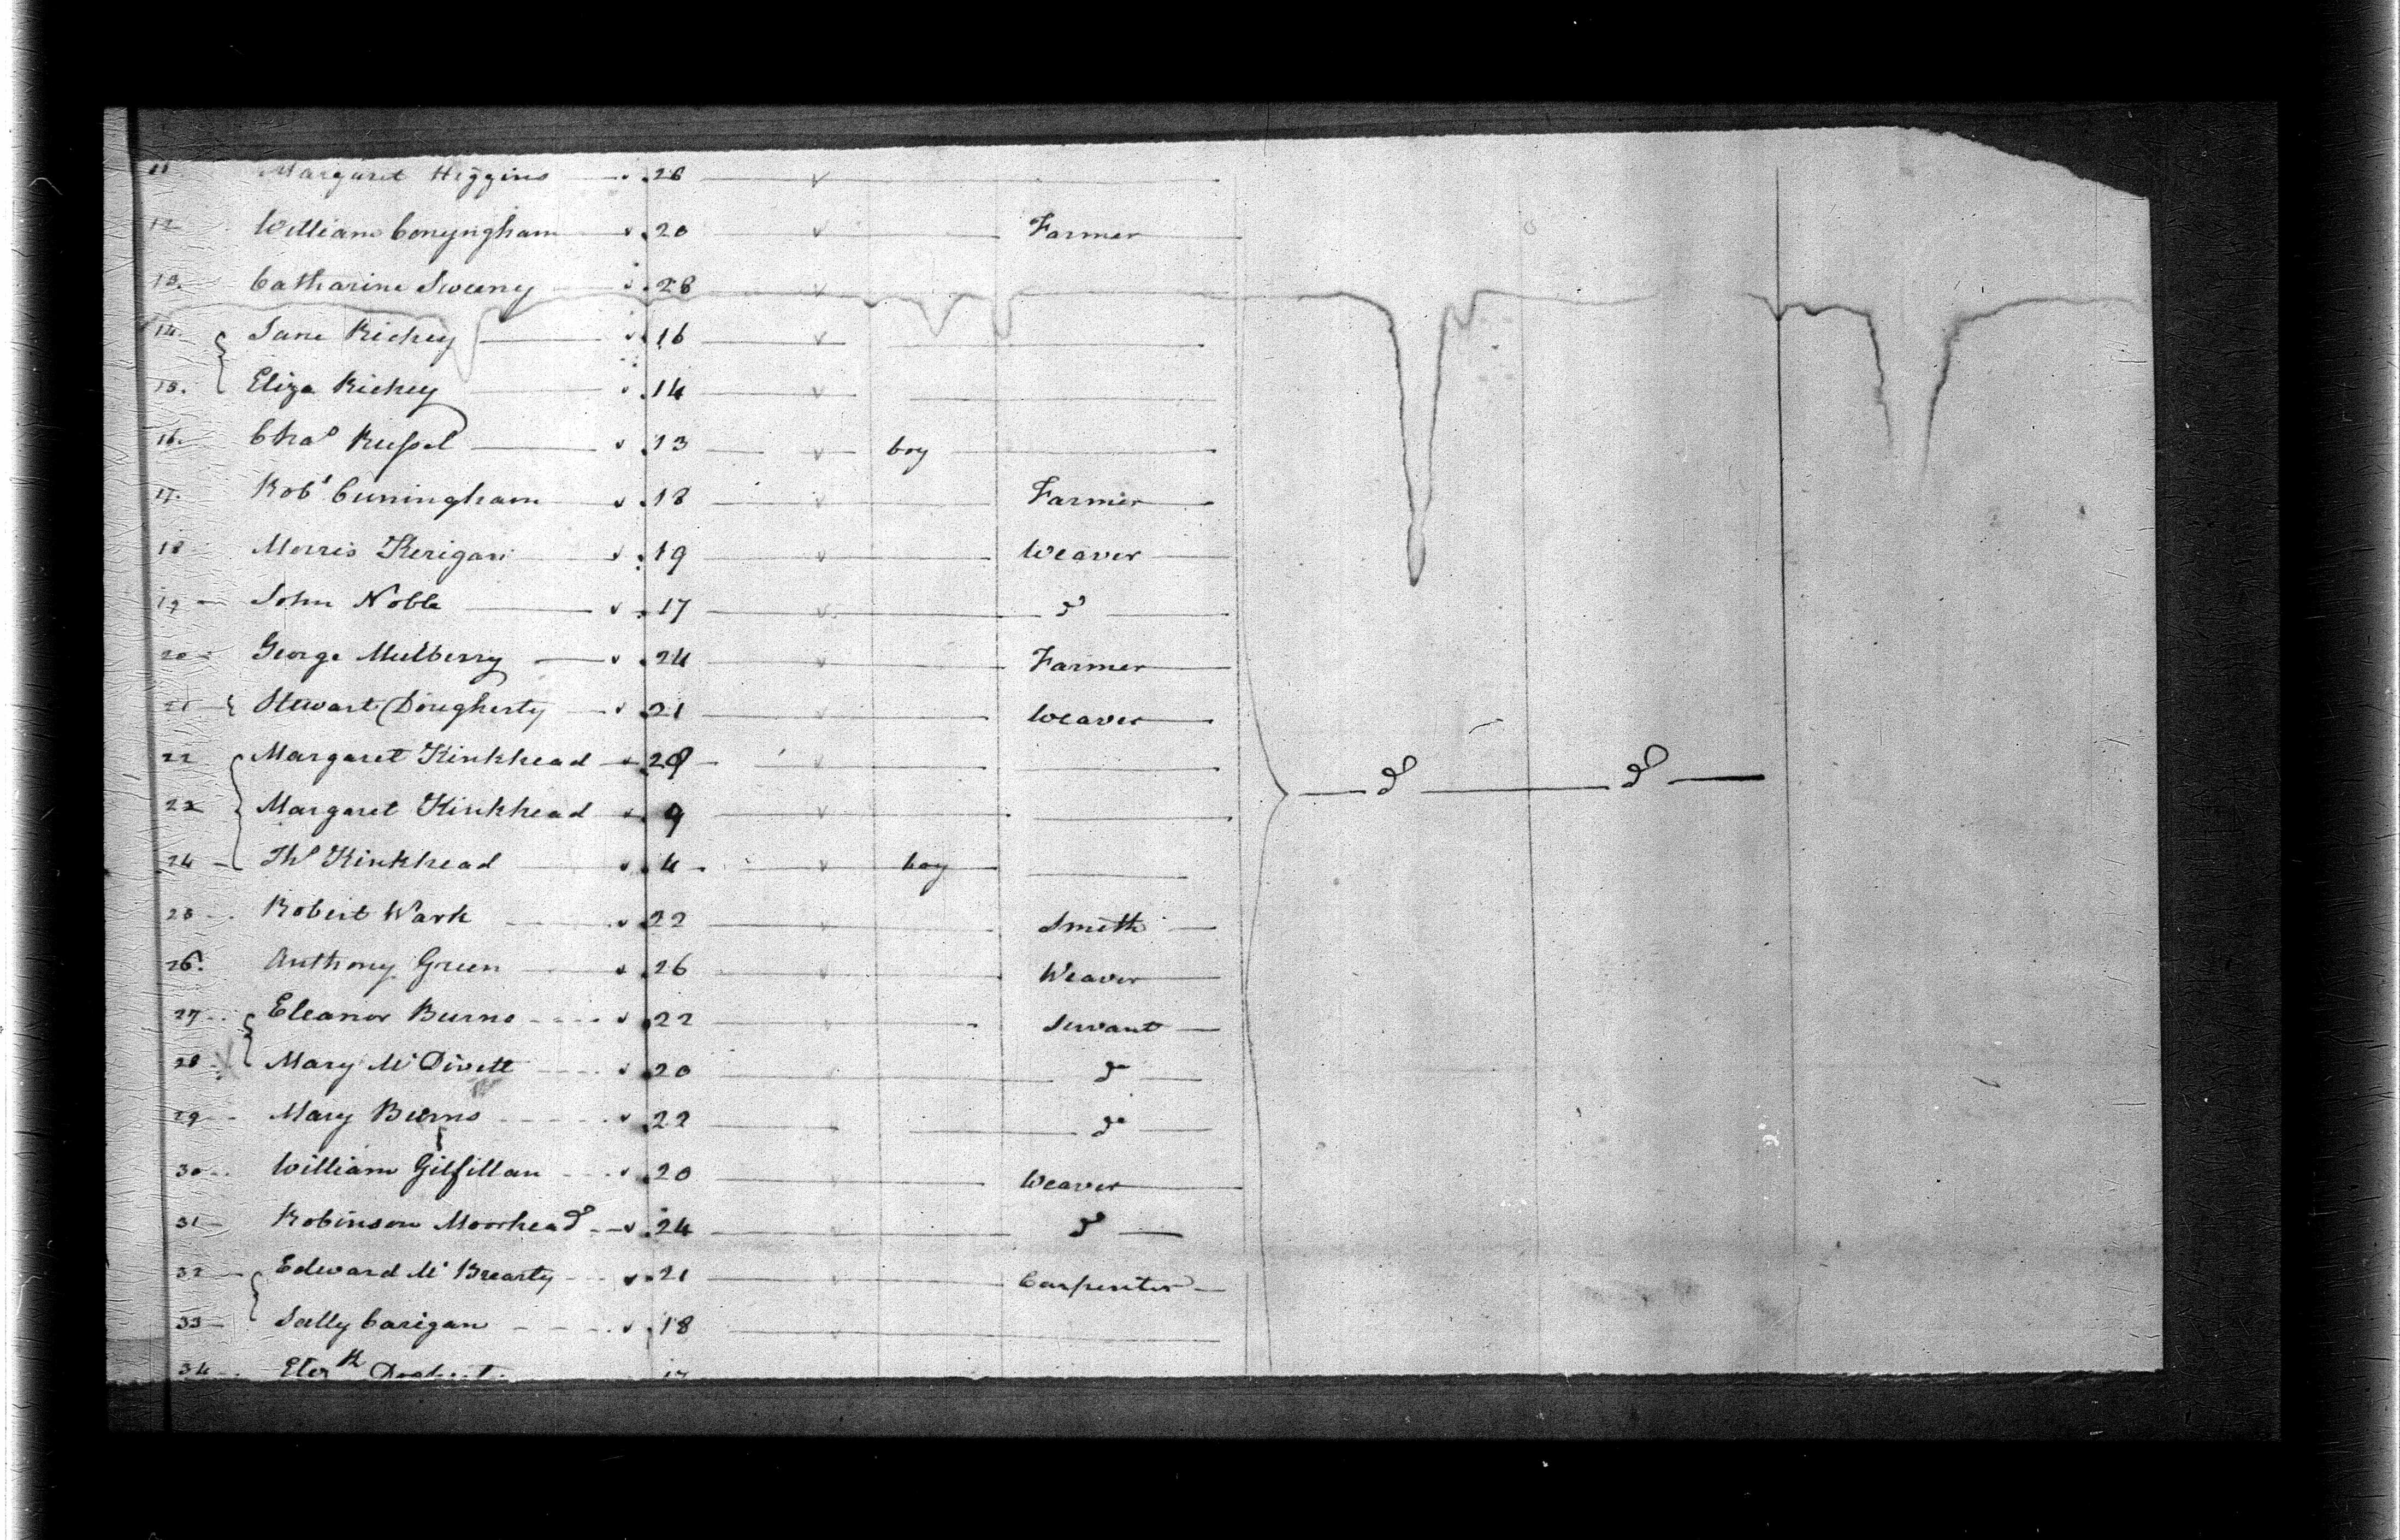 11 Margaret Higgins 26
12 William Conyngham 20 Farmer
13. Catharine Sweeny 28
14. Jane Richey 16
15. Eliza Richey 14
16. Chas Russel 13 boy
17. Robt Cuningham 18 Farmer
18 Morris Kerigan 19 Weaver
19 John Noble 17 do
20 George Mulberry 24 Farmer
21 Stewart Dougherty 21 Weaver
22 Margaret Kinkhead 29 do do
23 Margaret Kinkhead 9
24 Ths Kinkhead 4 boy
25 Robert Wark 22 Smith
26. Anthony Green 26 Weaver
27 Eleanor Burns 22 Servant
28 Mary Mc Divett 20 do
29 Mary Burns 22 do
30 William Gilfillan 20 Weaver
31 Robinson Moorhead 24 do
32 Edward Mc Brearty 21 Carpenter
33 Sally Carigan 18
34